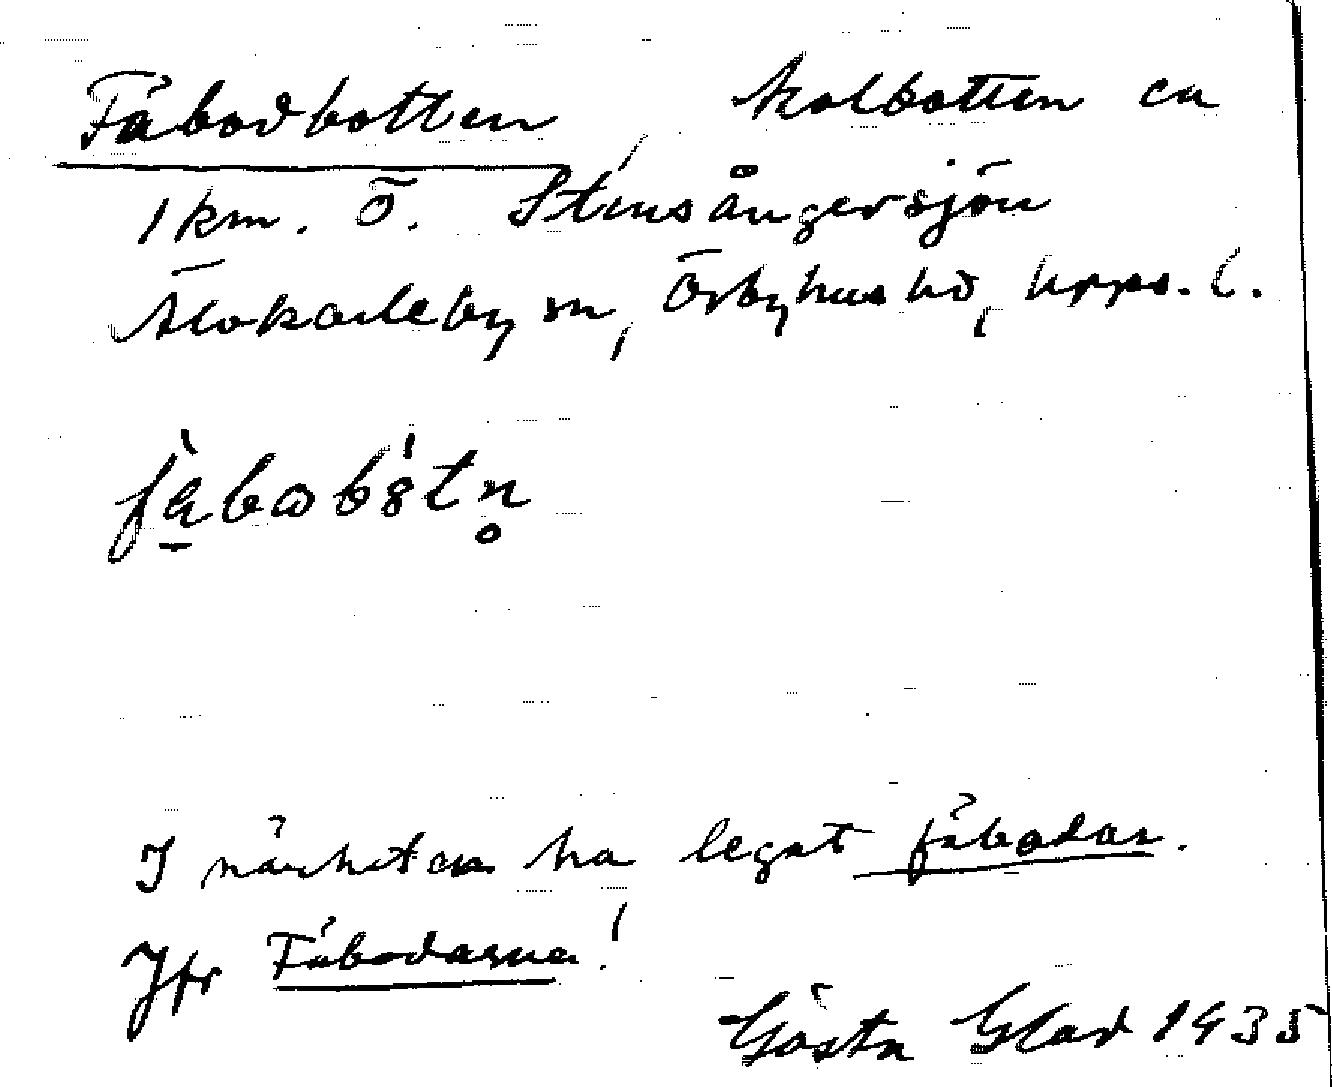 Fäbodbotten, kolbotten ca
1 km. Ö. Stensångersjön
Älvkarleby sn, Örbyhus hd, Upps. l.
I närheten ha legat fäbodar.
Jfr Fäbodarna!
Gösta Glad 1935